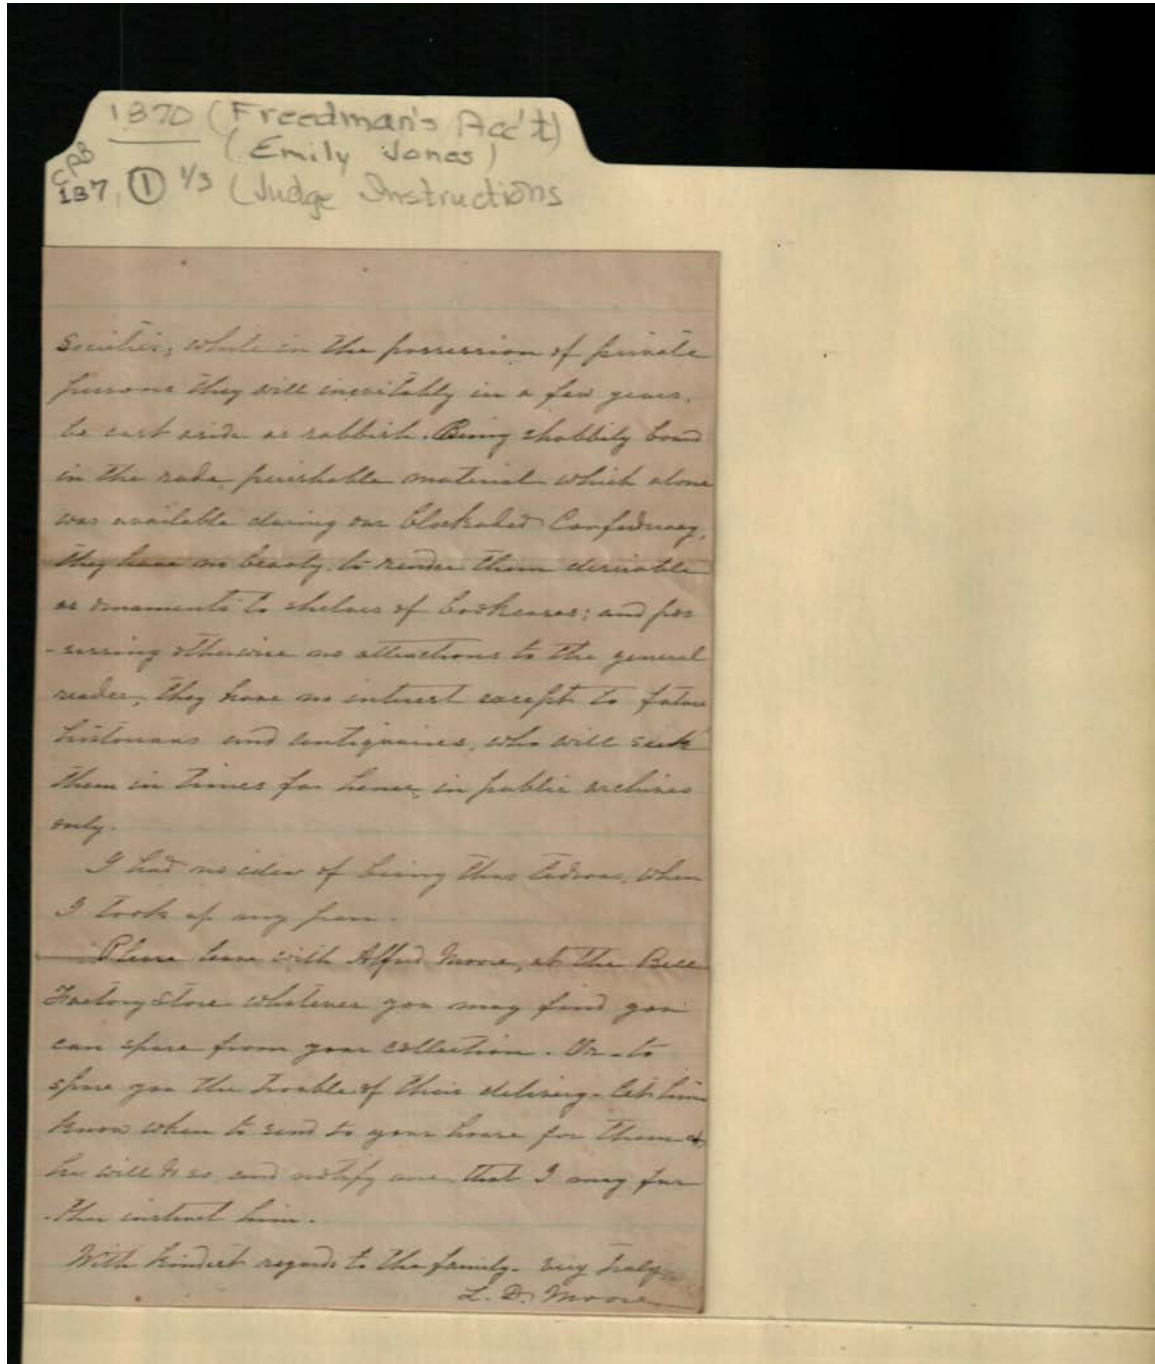 1870 (Freedman's Acc't)
(Emily Jones)
CPB
187, ① 1/3 (Judge Instructions
Societies, while in the possession of private
persons they will inevitably in a few years,
be cast aside as rubbish. Being shabbily bound
in the rude perishable material which alone
was available during our blockaded Confederacy,
they have no beauty to render them desirable
as ornaments to shelves of bookcases; and pos
-sessing otherwise no attractions to the general
reader, they have no interest except to future
historians and antiquaries, who will seek
them in times far hence, in public archives
only.
I had no idea of being thus tedious, when
I took up my pen.
Please leave with Alfred Moore, at the Bell
Factory Store whatever you may find you
can spare from your collection. Or - to
spare you the trouble of their delivery - let him
know when to send to your house for them &
he will do so, and notify me that I may fur
-ther instruct him.
With kindest regards to the family - very truly
L. D. Moore